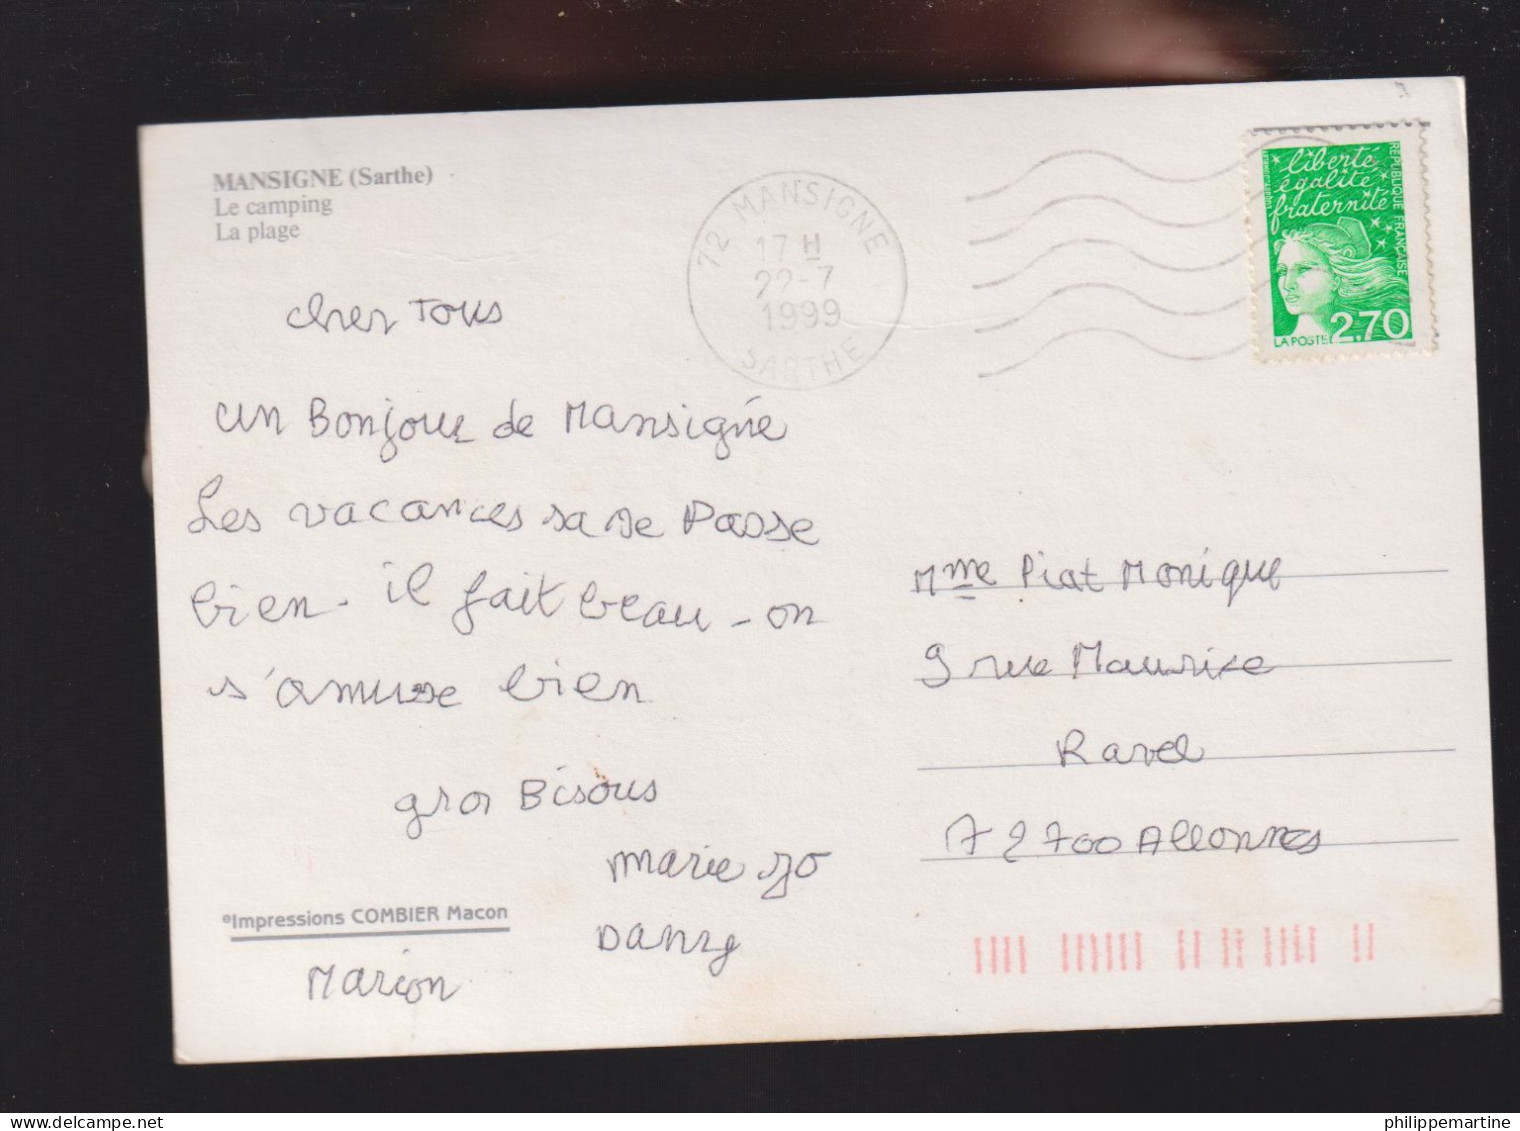 MANSIGNE (Sarthe)
Le camping
La plage
72 MANSIGNE
17 H
22-7
1999
SARTHE
liberté
égalité
fraternité
REPUBLIQUE FRANÇAISE
LA POSTE 2,70
cher Tous
un Bonjour de Mansigné
Les vacances sa se Passe
bien - il fait beau - on
s'amuse bien
gros Bisous
marie jo
Dany
Marion
©Impressions COMBIER Macon
Mme Piat Monique
9 rue Maurice
Ravel
72700 Allonnes
philippemartine